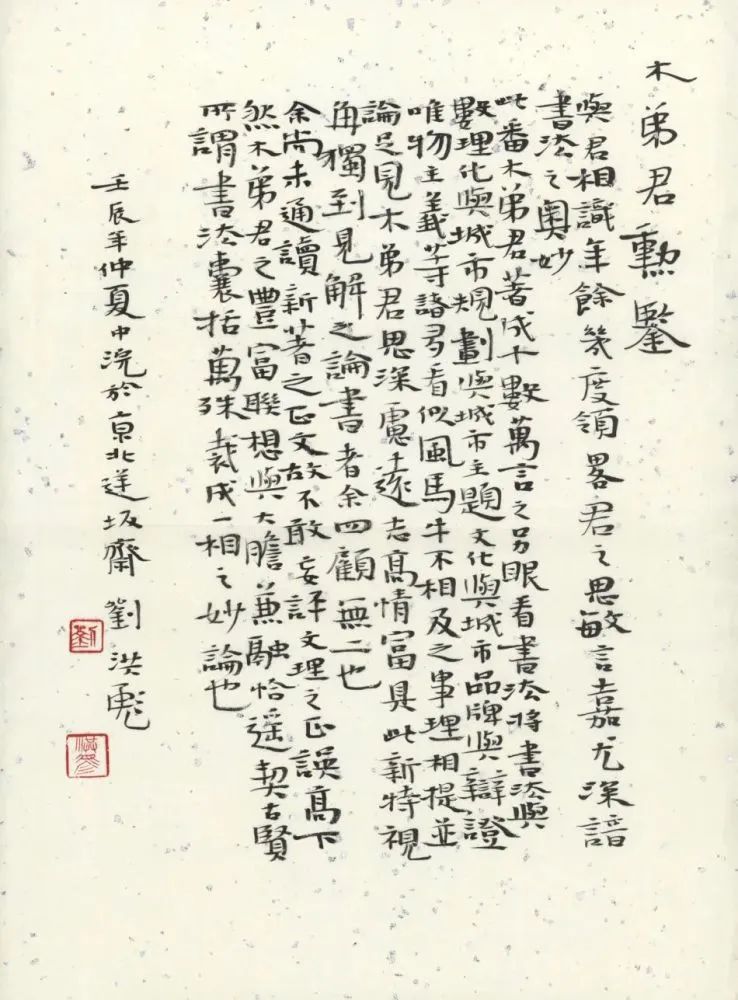 木弟君勳鑒
與君相識年餘幾度領畧君之思敏言嘉尤深諳
書法之奧妙
此番木弟君著成十數萬言之另眼看書法將書法與
數理化與城市規劃與城市主題文化與城市品牌與辯證
唯物主義等諸多看似風馬牛不相及之事理相提並
論足見木弟君思深慮遠志高情富具此新特視
角獨到見解之論書者余四顧無二也
余尚未通讀新著之正文故不敢妄評文理之正誤高下
然木弟君之豐富聯想與大膽兼融恰遥契古賢
所謂書法囊括萬殊裁成一相之妙論也
壬辰年仲夏中浣於京北逆坂齋 劉洪彪
劉